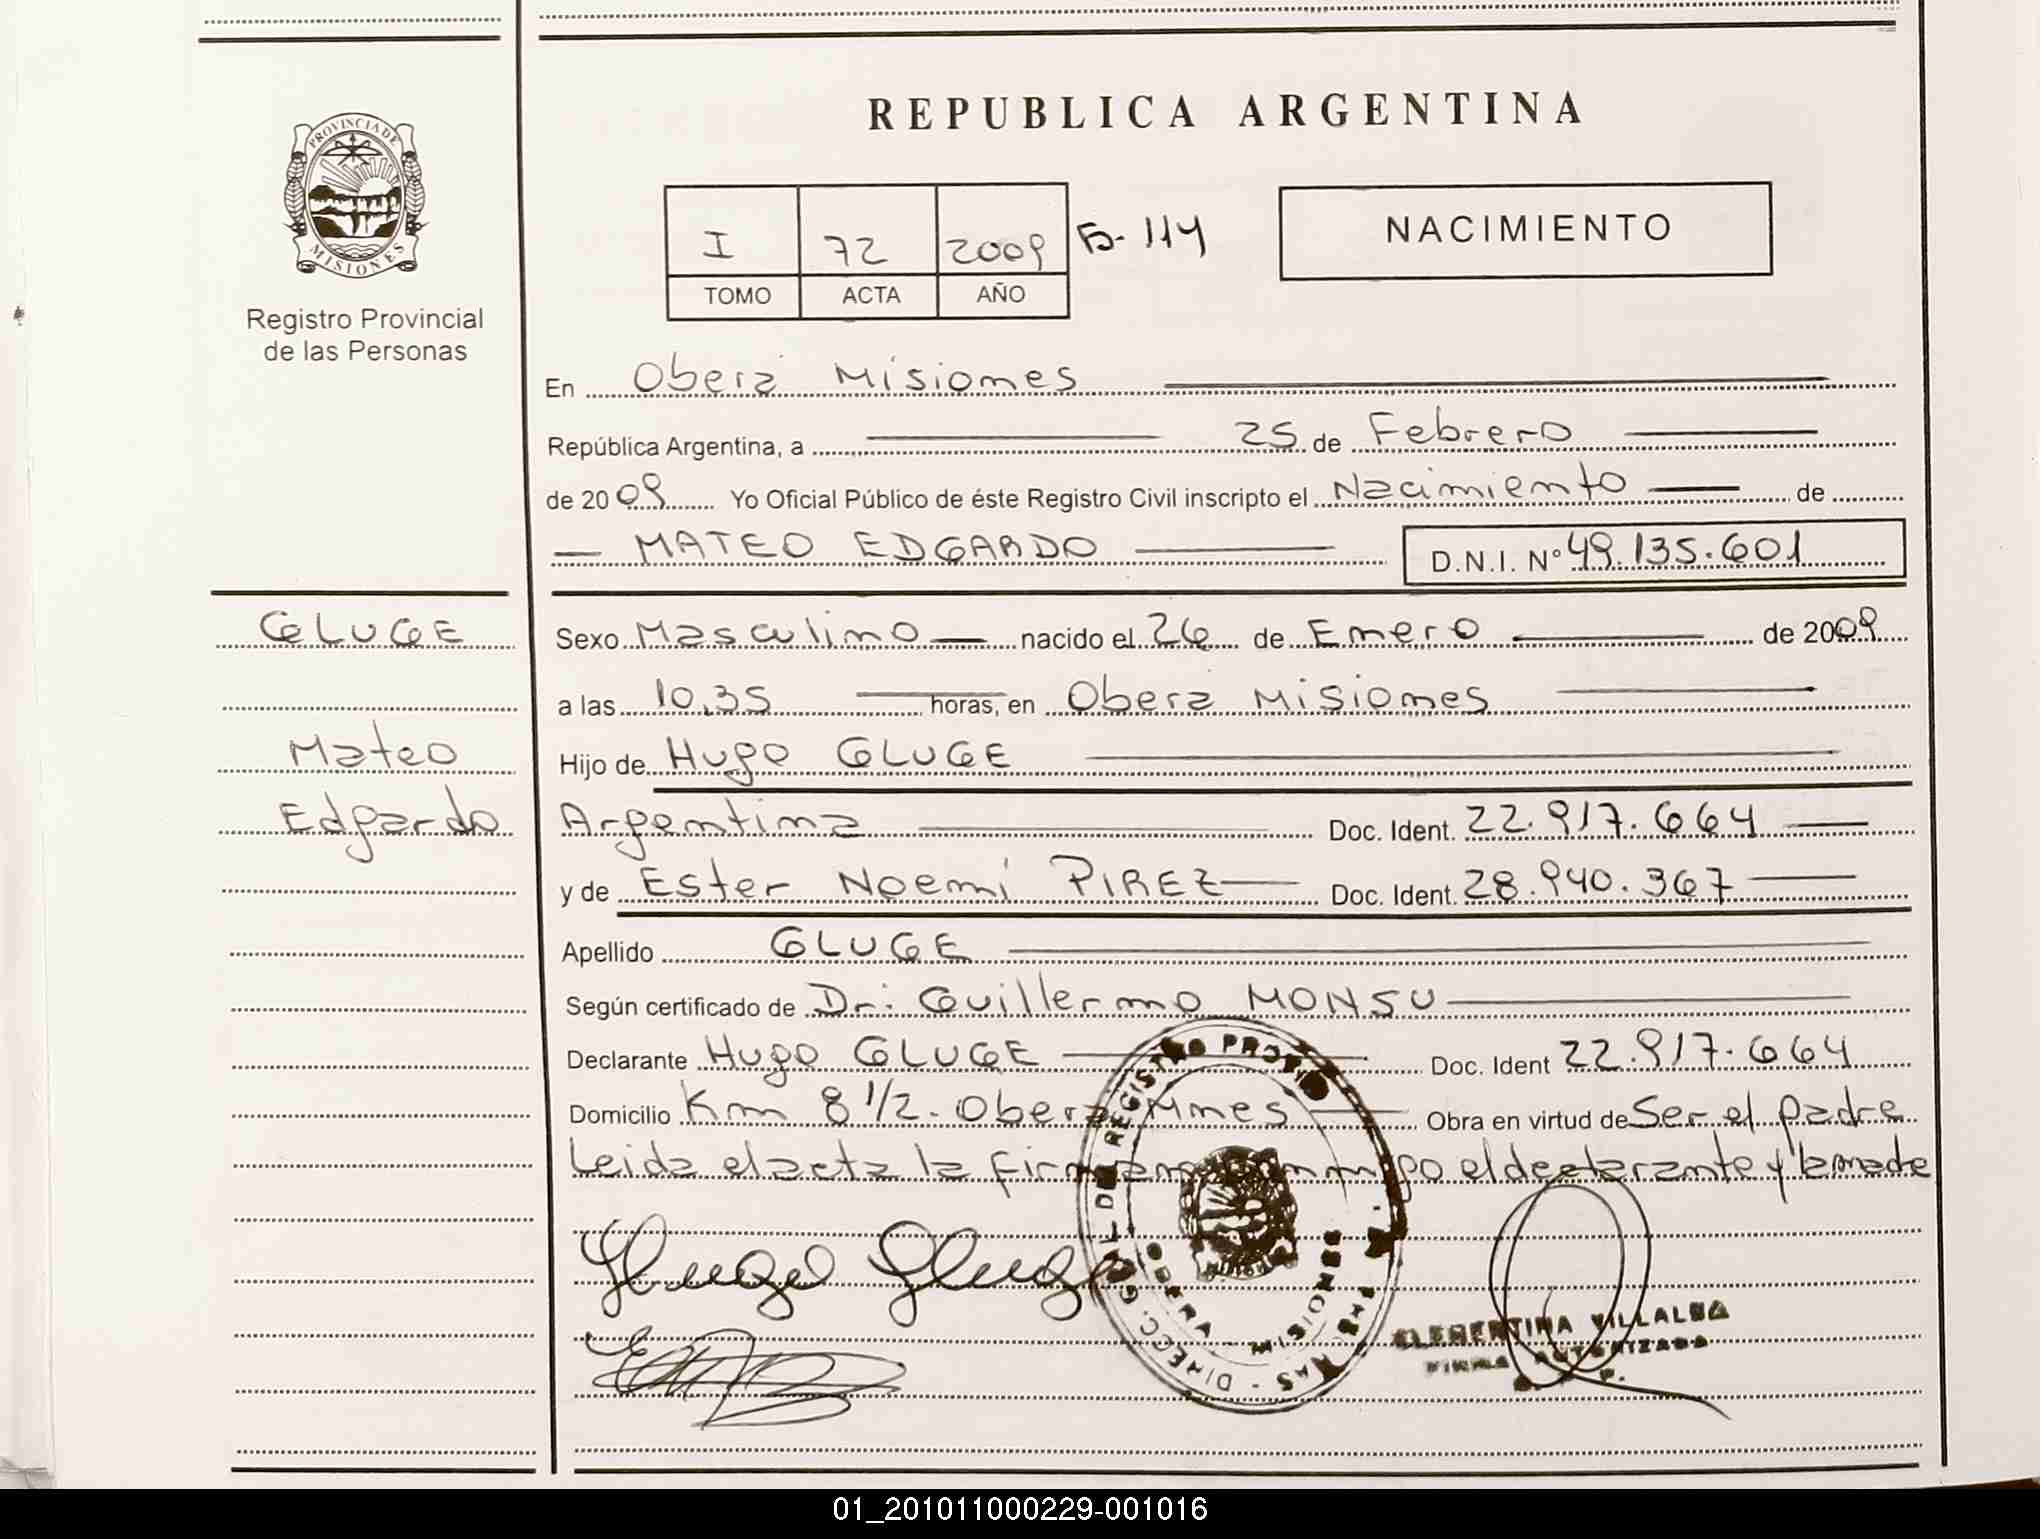 REPUBLICA ARGENTINA
PROVINCIA DE
MISIONES
Registro Provincial
de las Personas
I 72 2009
TOMO ACTA AÑO
114
NACIMIENTO
En Oberá Misiones
República Argentina, a 25 de Febrero
de 2009 Yo Oficial Público de éste Registro Civil inscripto el Nacimiento de
MATEO EDGARDO D.N.I. Nº 49.135.601
GLUGE
Sexo Masculino nacido el 26 de Enero de 2009
a las 10,35 horas, en Oberá Misiones
Mateo
Hijo de Hugo GLUGE
Edgardo
Argentina Doc. Ident. 22.917.664
y de Ester Noemí PIREZ Doc. Ident. 28.940.367
Apellido GLUGE
Según certificado de Dr: Guillermo MONSU
Declarante Hugo GLUGE Doc. Ident 22.917.664
Domicilio Km 8 1/2 - Oberá Mnes Obra en virtud de Ser el padre
Leida el acta la firman conmigo el declarante y la madre
Hugo Gluge
CLEMENTINA VILLALBA
FIRMA AUTORIZADA
01_201011000229-001016